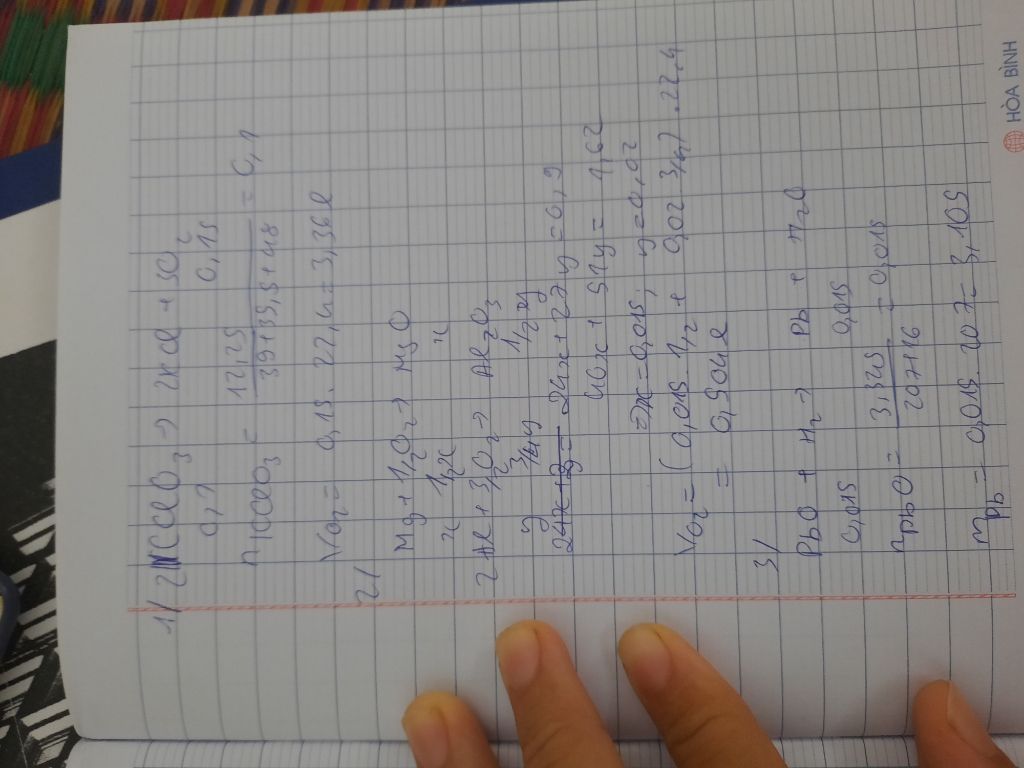 1/ 2KClO3 → 2KCl + 3O2
0,1 0,15
nKClO3 = 12,25 / 39+35,5+48 = 0,1
VO2 = 0,15 . 22,4 = 3,36l
2/
Mg + 1/2O2 → MgO
x 1/2x x
2Al + 3/2O2 → Al2O3
y 3/4y 1/2y
24x + 27y = 0,9
40x + 51y = 1,62
=> x = 0,015; y = 0,02
VO2 = (0,015 . 1/2 + 0,02 . 3/4) . 22,4
= 0,504l
3/
PbO + H2 → Pb + H2O
0,015 0,015
nPbO = 3,345 / 207+16 = 0,015
mPb = 0,015 . 207 = 3,105
HÒA BÌNH